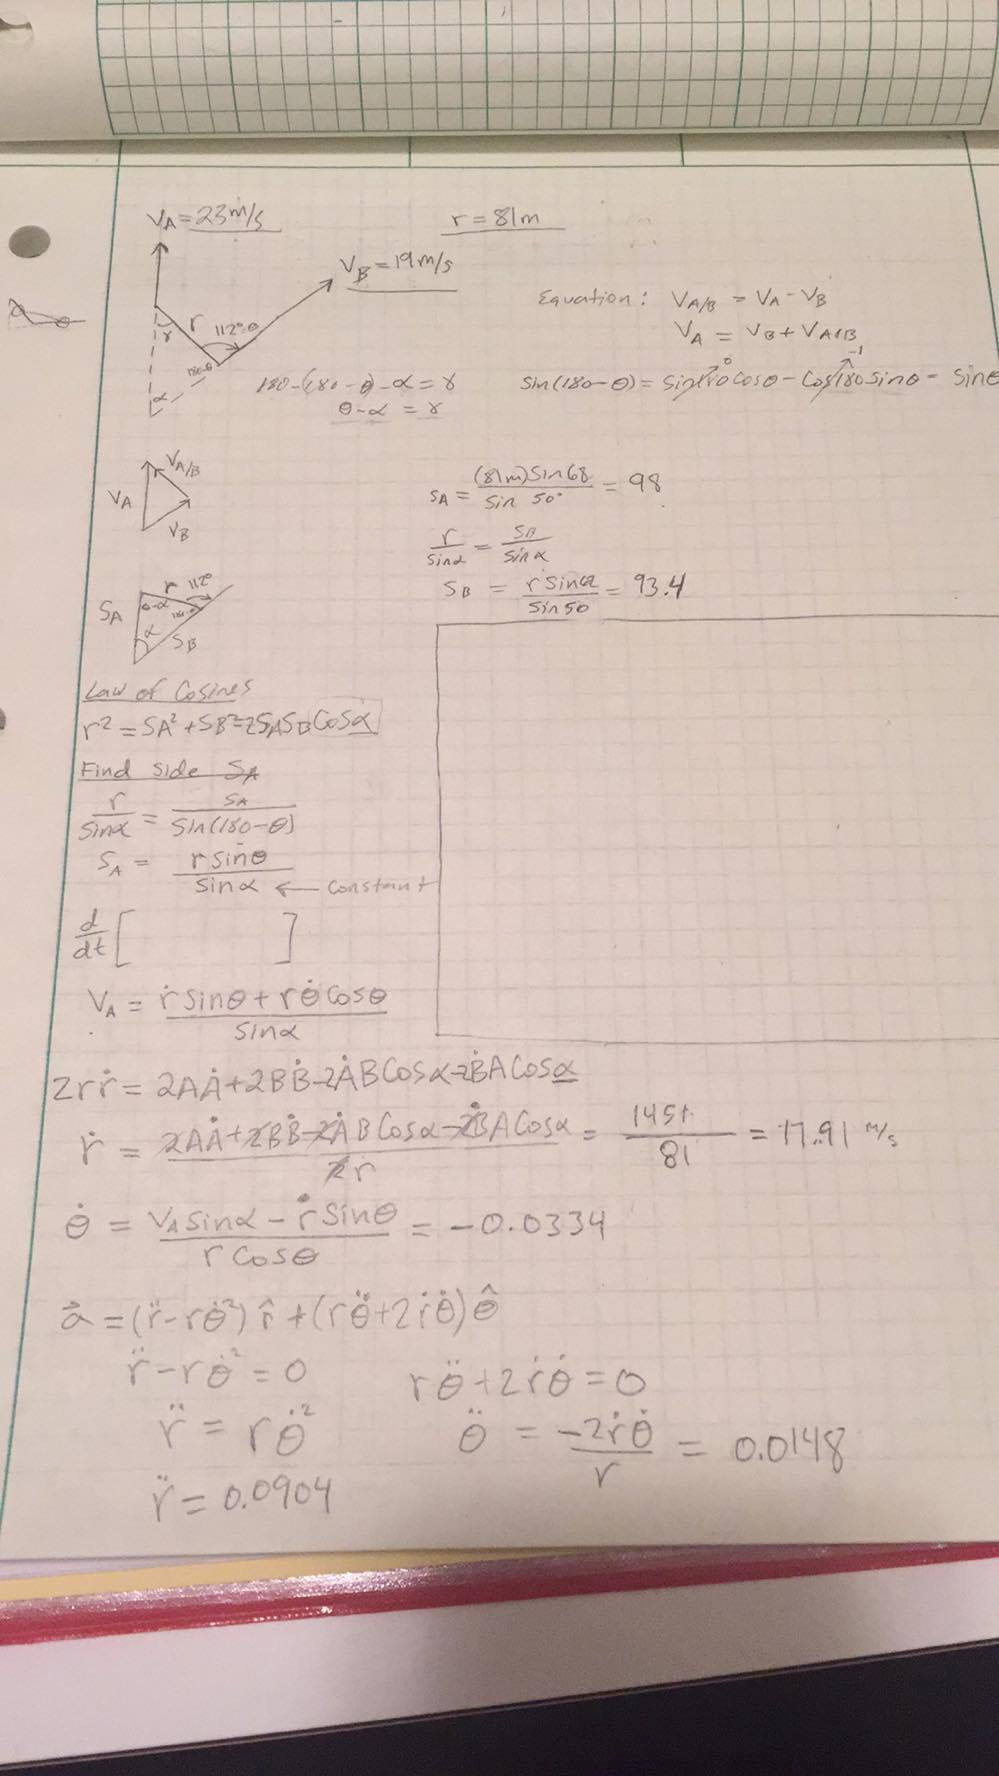 V_A = 23 m/s
r = 81m
V_B = 19 m/s
r
112°=θ
γ
180-θ
α
Equation: V_A/B = V_A - V_B
V_A = V_B + V_A/B
180-(180-θ)-α = γ
θ-α = γ
sin(180-θ) = sin180cosθ - cos180sinθ = sinθ
0
-1
V_A/B
V_A
V_B
S_A = (81m)sin68 / sin 50° = 98
r/sinα = S_B/sinα
S_B = r sin62 / sin50 = 93.4
r 112°
S_A θ-α 180-θ
α
S_B
Law of Cosines
r² = SA² + SB² - 2SASBCosα
Find side SA
r/sinα = SA/sin(180-θ)
S_A = r sinθ / sinα ← constant
d/dt [ ]
V_A = ṙsinθ + rθ̇Cosθ / sinα
2rṙ = 2AȦ + 2BḂ - 2ȦBCosα - 2ḂACosα
ṙ = 2AȦ + 2BḂ - 2ȦBCosα - 2ḂACosα / 2r = 1451/81 = 17.91 m/s
θ̇ = V_A sinα - ṙsinθ / rCosθ = -0.0334
a⃗ = (r̈-rθ̇²)r̂ + (rθ̈+2ṙθ̇)θ̂
r̈-rθ̇² = 0
rθ̈+2ṙθ̇ = 0
r̈ = rθ̇²
θ̈ = -2ṙθ̇ / r = 0.0148
r̈ = 0.0904